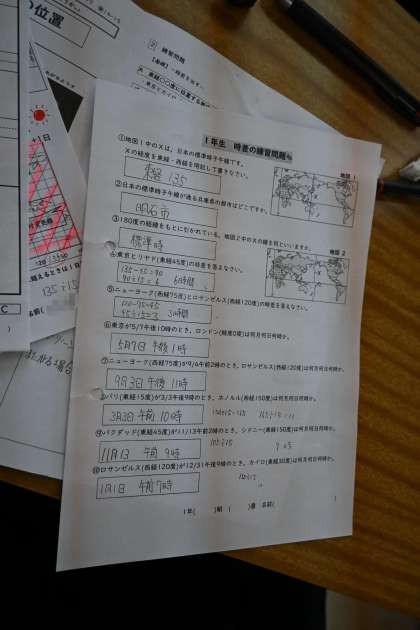 の位置
② 練習問題
1年生 時差の練習問題
①地図1中のXは、日本の標準時子午線です。
Xの経度を東経・西経を明記して書きなさい。
東経 135
地図 1
②日本の標準時子午線が通る兵庫県の都市はどこですか。
明石市
③180度の経線をもとに引かれている、地図2中のXの線を何といいますか。
標準時
地図 2
④東京とリヤド(東経45度)の時差を答えなさい。
135-45=90
90÷15=6 6時間
⑤ニューヨーク(西経75度)とロサンゼルス(西経120度)の時差を答えなさい。
120-75=45
45÷15=3 3時間
⑥東京が5/7午後10時のとき、ロンドン(経度0度)は何月何日何時か。
5月7日 午後 1時
⑦ニューヨーク(西経75度)が9/4午前2時のとき、ロサンゼルス(西経120度)は何月何日何時か。
9月3日 午後 11時
⑧パリ(東経15度)が3/3午後9時のとき、ホノルル(西経150度)は何月何日何時か。
3月3日 午前 10時
⑨バグダッド(東経45度)が11/13午前2時のとき、シドニー(東経150度)は何月何日何時か。
11月13 午前 9時
⑩ロサンゼルス(西経120度)が12/31午後9時のとき、カイロ(東経30度)は何月何日何時か。
1月1日 午前7時
1年( )組 ( )番 名前( )